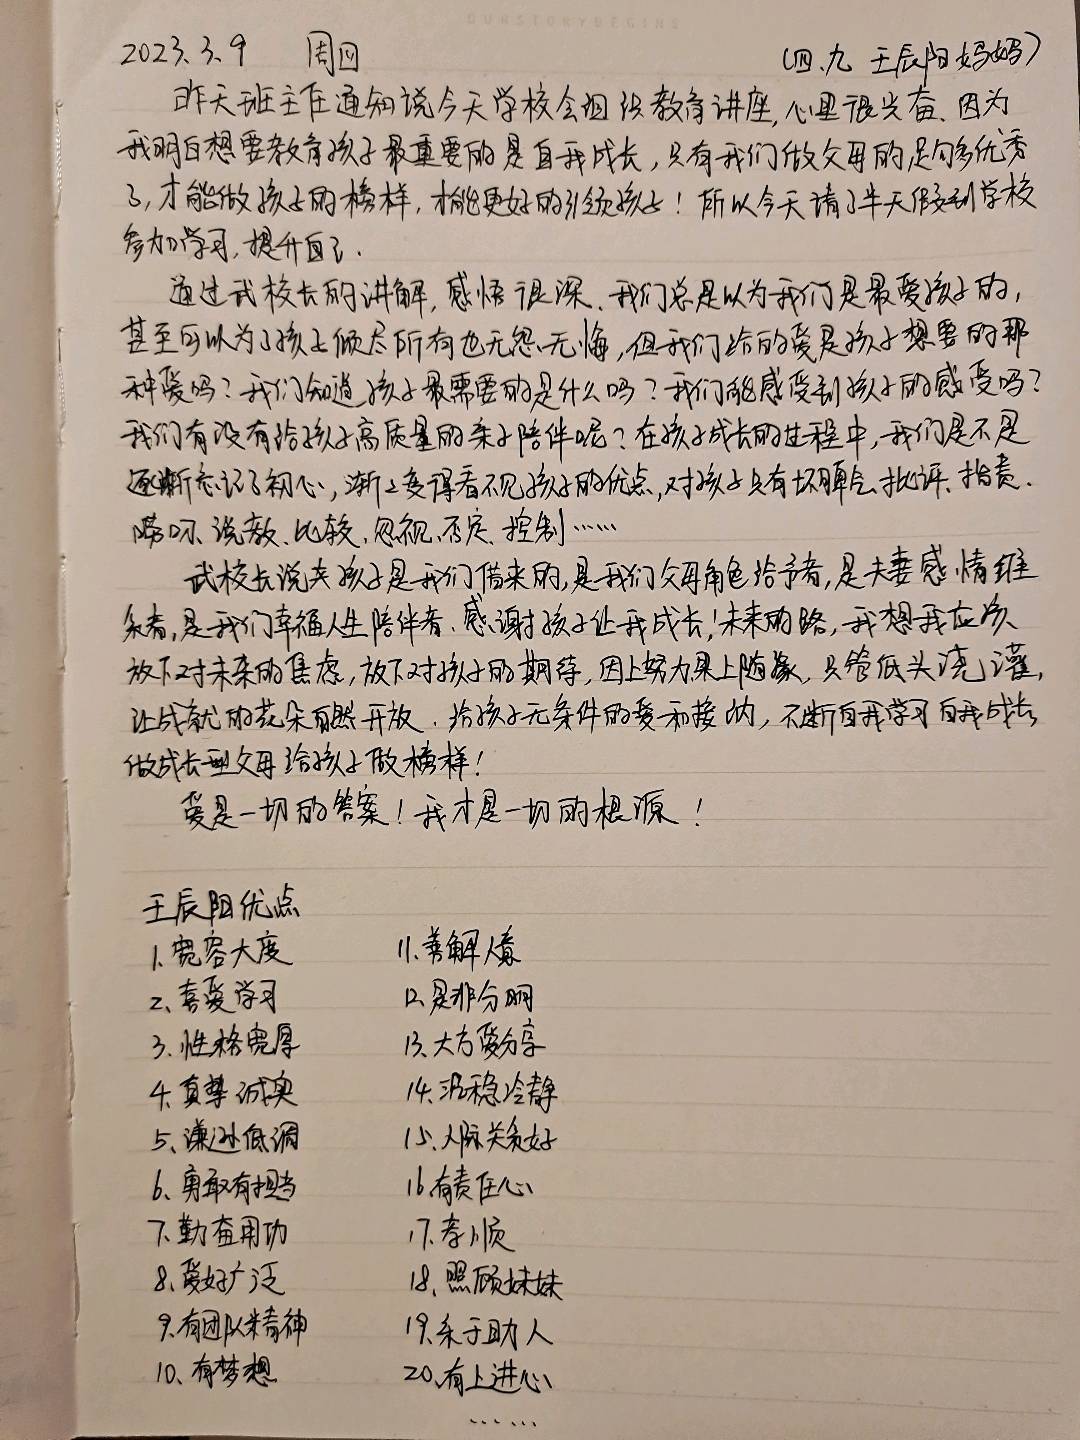 OURSTORYBEGINS
2023.3.9 周四 (四.九 王辰阳妈妈)
昨天班主任通知说今天学校会组织教育讲座,心里很兴奋、因为
我明白想要教育孩子最重要的是自我成长,只有我们做父母的足够优秀
了,才能做孩子的榜样,才能更好的引领孩子!所以今天请了半天假到学校
参加学习,提升自己.
通过武校长的讲解,感悟很深、我们总是以为我们是最爱孩子的,
甚至可以为了孩子倾尽所有也无怨无悔,但我们给的爱是孩子想要的那
种爱吗?我们知道孩子最需要的是什么吗?我们能感受到孩子的感受吗?
我们有没有给孩子高质量的亲子陪伴呢?在孩子成长的过程中,我们是不是
逐渐忘记了初心,渐渐变得看不见孩子的优点,对孩子只有坏脾气、批评、指责、
唠叨、说教、比较、忽视、否定、控制……
武校长说孩子是我们借来的,是我们父母角色给予者,是夫妻感情维
系者,是我们幸福人生陪伴者.感谢孩子让我成长!未来的路,我想我应该
放下对未来的焦虑,放下对孩子的期待,因上努力果上随缘,只管低头浇灌,
让成就的花朵自然开放.给孩子无条件的爱和接纳,不断自我学习自我成长,
做成长型父母给孩子做榜样!
爱是一切的答案!我才是一切的根源!
王辰阳优点
1、宽容大度 11、善解人意
2、喜爱学习 12、是非分明
3、性格宽厚 13、大方爱分享
4、真挚诚实 14、沉稳冷静
5、谦逊低调 15、人际关系好
6、勇敢有担当 16、有责任心
7、勤奋用功 17、孝顺
8、爱好广泛 18、照顾妹妹
9、有团队精神 19、乐于助人
10、有梦想 20、有上进心
……